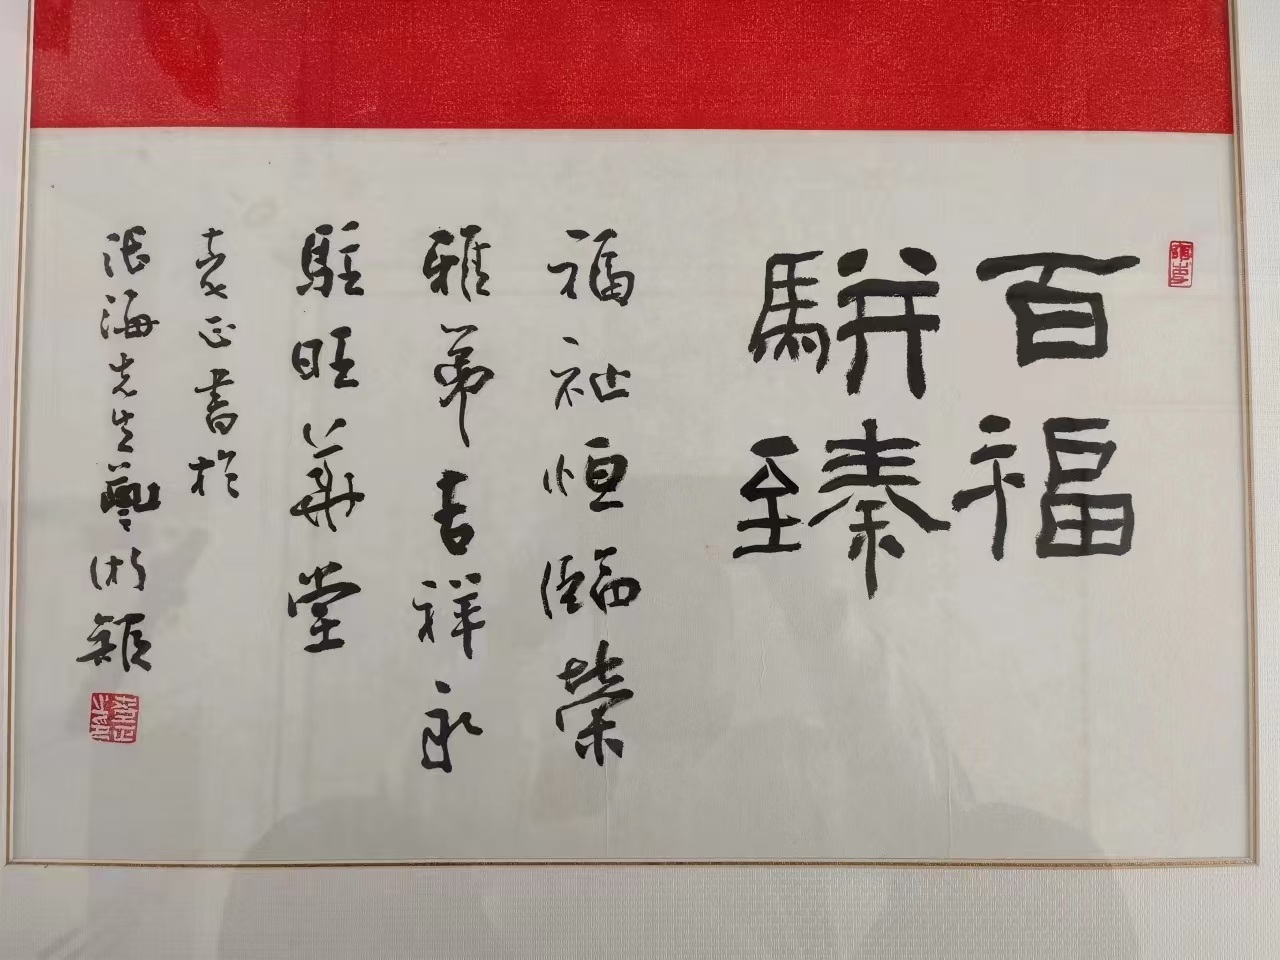 百福
駢臻
福祉恒臨榮
雅第吉祥永
駐旺華堂
正書於
張海先生藝術館